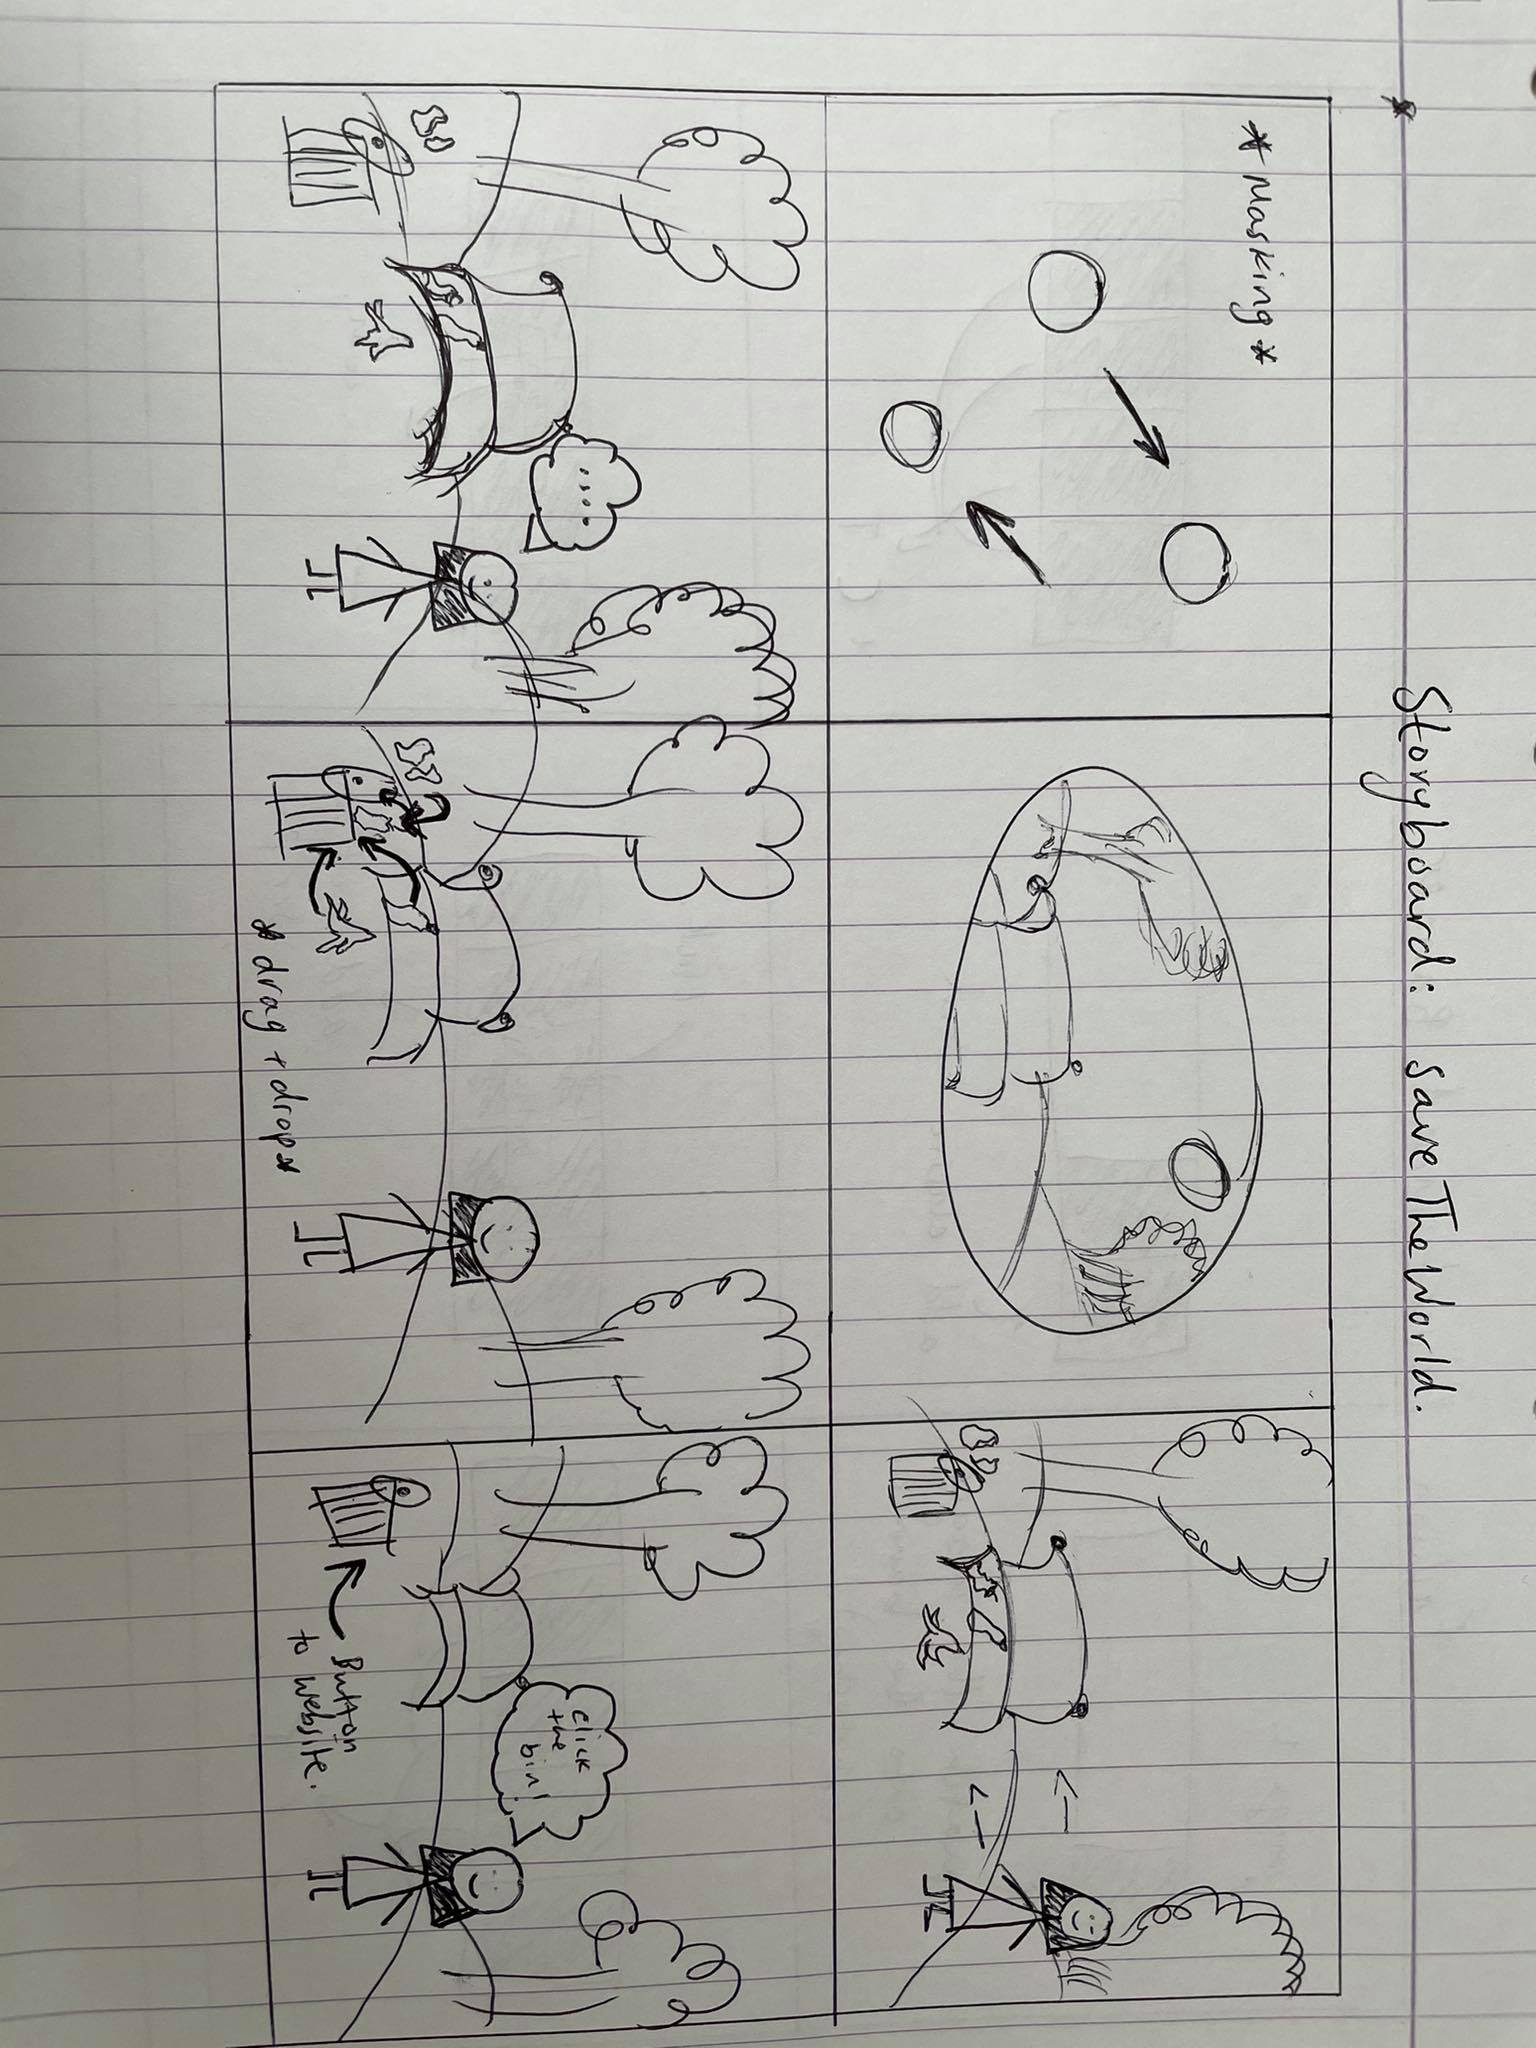 Storyboard: Save The World.
* Masking *
....
* drag + drop *
click
the
bin!
Button
to website.